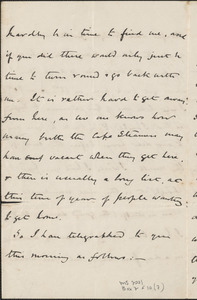 hardly be in time to find me, and
if you did there would only just be
time to turn round & go back with
me. It is rather hard to get away
from here, as no one knows how
many berths the Cape Steamers may
have vacant when they get here
& there is usually a long list, at
this time of year of people wanting
to get home.
So I have telegraphed to you
this morning as follows:—